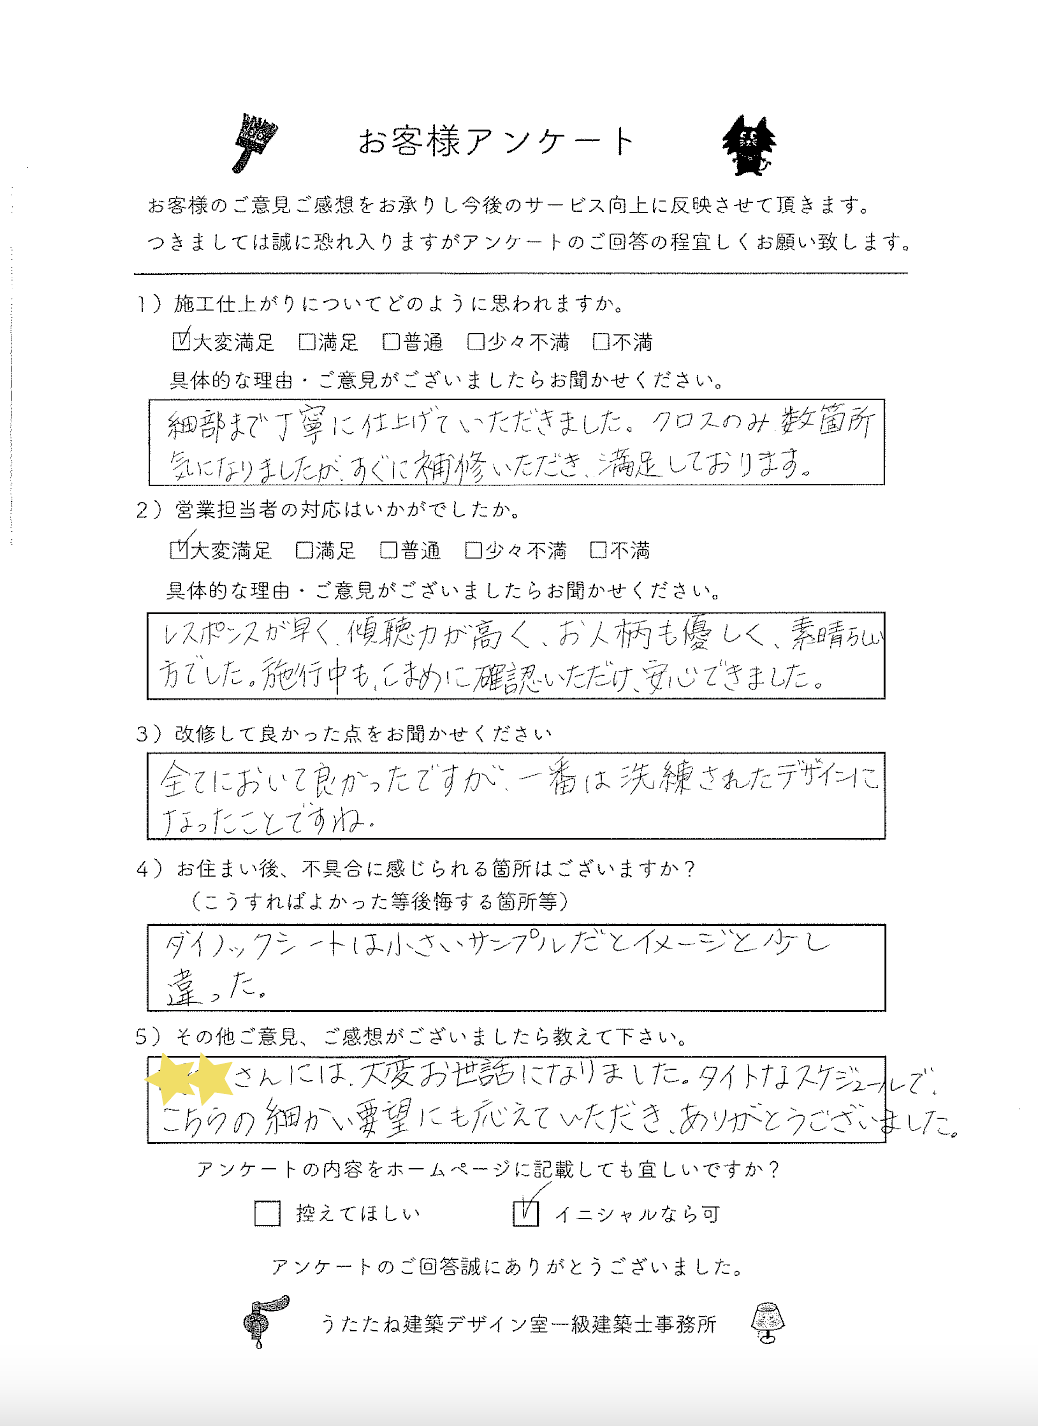 お客様アンケート
お客様のご意見ご感想をお承りし今後のサービス向上に反映させて頂きます。
つきましては誠に恐れ入りますがアンケートのご回答の程宜しくお願い致します。
1）施工仕上がりについてどのように思われますか。
☑大変満足 □満足 □普通 □少々不満 □不満
具体的な理由・ご意見がございましたらお聞かせください。
細部まで丁寧に仕上げていただきました。クロスのみ数箇所
気になりましたが、すぐに補修いただき、満足しております。
2）営業担当者の対応はいかがでしたか。
☑大変満足 □満足 □普通 □少々不満 □不満
具体的な理由・ご意見がございましたらお聞かせください。
レスポンスが早く、傾聴力が高く、お人柄も優しく、素晴らしい
方でした。施行中も、こまめに確認いただけ、安心できました。
3）改修して良かった点をお聞かせください
全てにおいて良かったですが、一番は洗練されたデザインに
なったことですね。
4）お住まい後、不具合に感じられる箇所はございますか？
（こうすればよかった等後悔する箇所等）
ダイノックシートは小さいサンプルだとイメージと少し
違った。
5）その他ご意見、ご感想がございましたら教えて下さい。
さんには、大変お世話になりました。タイトなスケジュールで、
こちらの細かい要望にも応えていただき、ありがとうございました。
アンケートの内容をホームページに記載しても宜しいですか？
□ 控えてほしい ☑ イニシャルなら可
アンケートのご回答誠にありがとうございました。
うたたね建築デザイン室一級建築士事務所